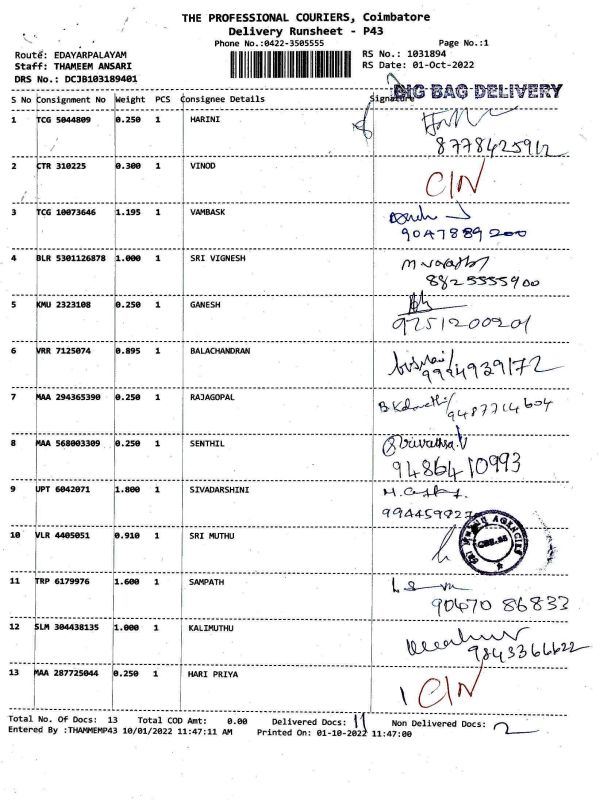 THE PROFESSIONAL COURIERS, Coimbatore
Delivery Runsheet - P43
Phone No.:0422-3505555
Page No.:1
Route: EDAYARPALAYAM
RS No.: 1031894
Staff: THAMEEM ANSARI
RS Date: 01-Oct-2022
DRS No.: DCJB103189401
BIG BAG DELIVERY
S No Consignment No Weight PCS Consignee Details Signature
1 TCG 5044809 0.250 1 HARINI
8778425912
2 CTR 310225 0.300 1 VINOD
C/N
3 TCG 10073646 1.195 1 VAMBASK
9047889200
4 BLR 5301126878 1.000 1 SRI VIGNESH
8825555900
5 KMU 2323108 0.250 1 GANESH
9751200201
6 VRR 7125074 0.895 1 BALACHANDRAN
9994939172
7 MAA 294365390 0.250 1 RAJAGOPAL
9487714604
8 MAA 568003309 0.250 1 SENTHIL
Srivathsa.V
9486410993
9 UPT 6042071 1.800 1 SIVADARSHINI
10 VLR 4405051 0.910 1 SRI MUTHU
AGENCIES
11 TRP 6179976 1.600 1 SAMPATH
90470 86833
12 SLM 304438135 1.000 1 KALIMUTHU
9843366622
13 MAA 287725044 0.250 1 HARI PRIYA
C/N
Total No. Of Docs: 13 Total COD Amt: 0.00 Delivered Docs: 11 Non Delivered Docs: 2
Entered By :THAMMEMP43 10/01/2022 11:47:11 AM Printed On: 01-10-2022 11:47:00